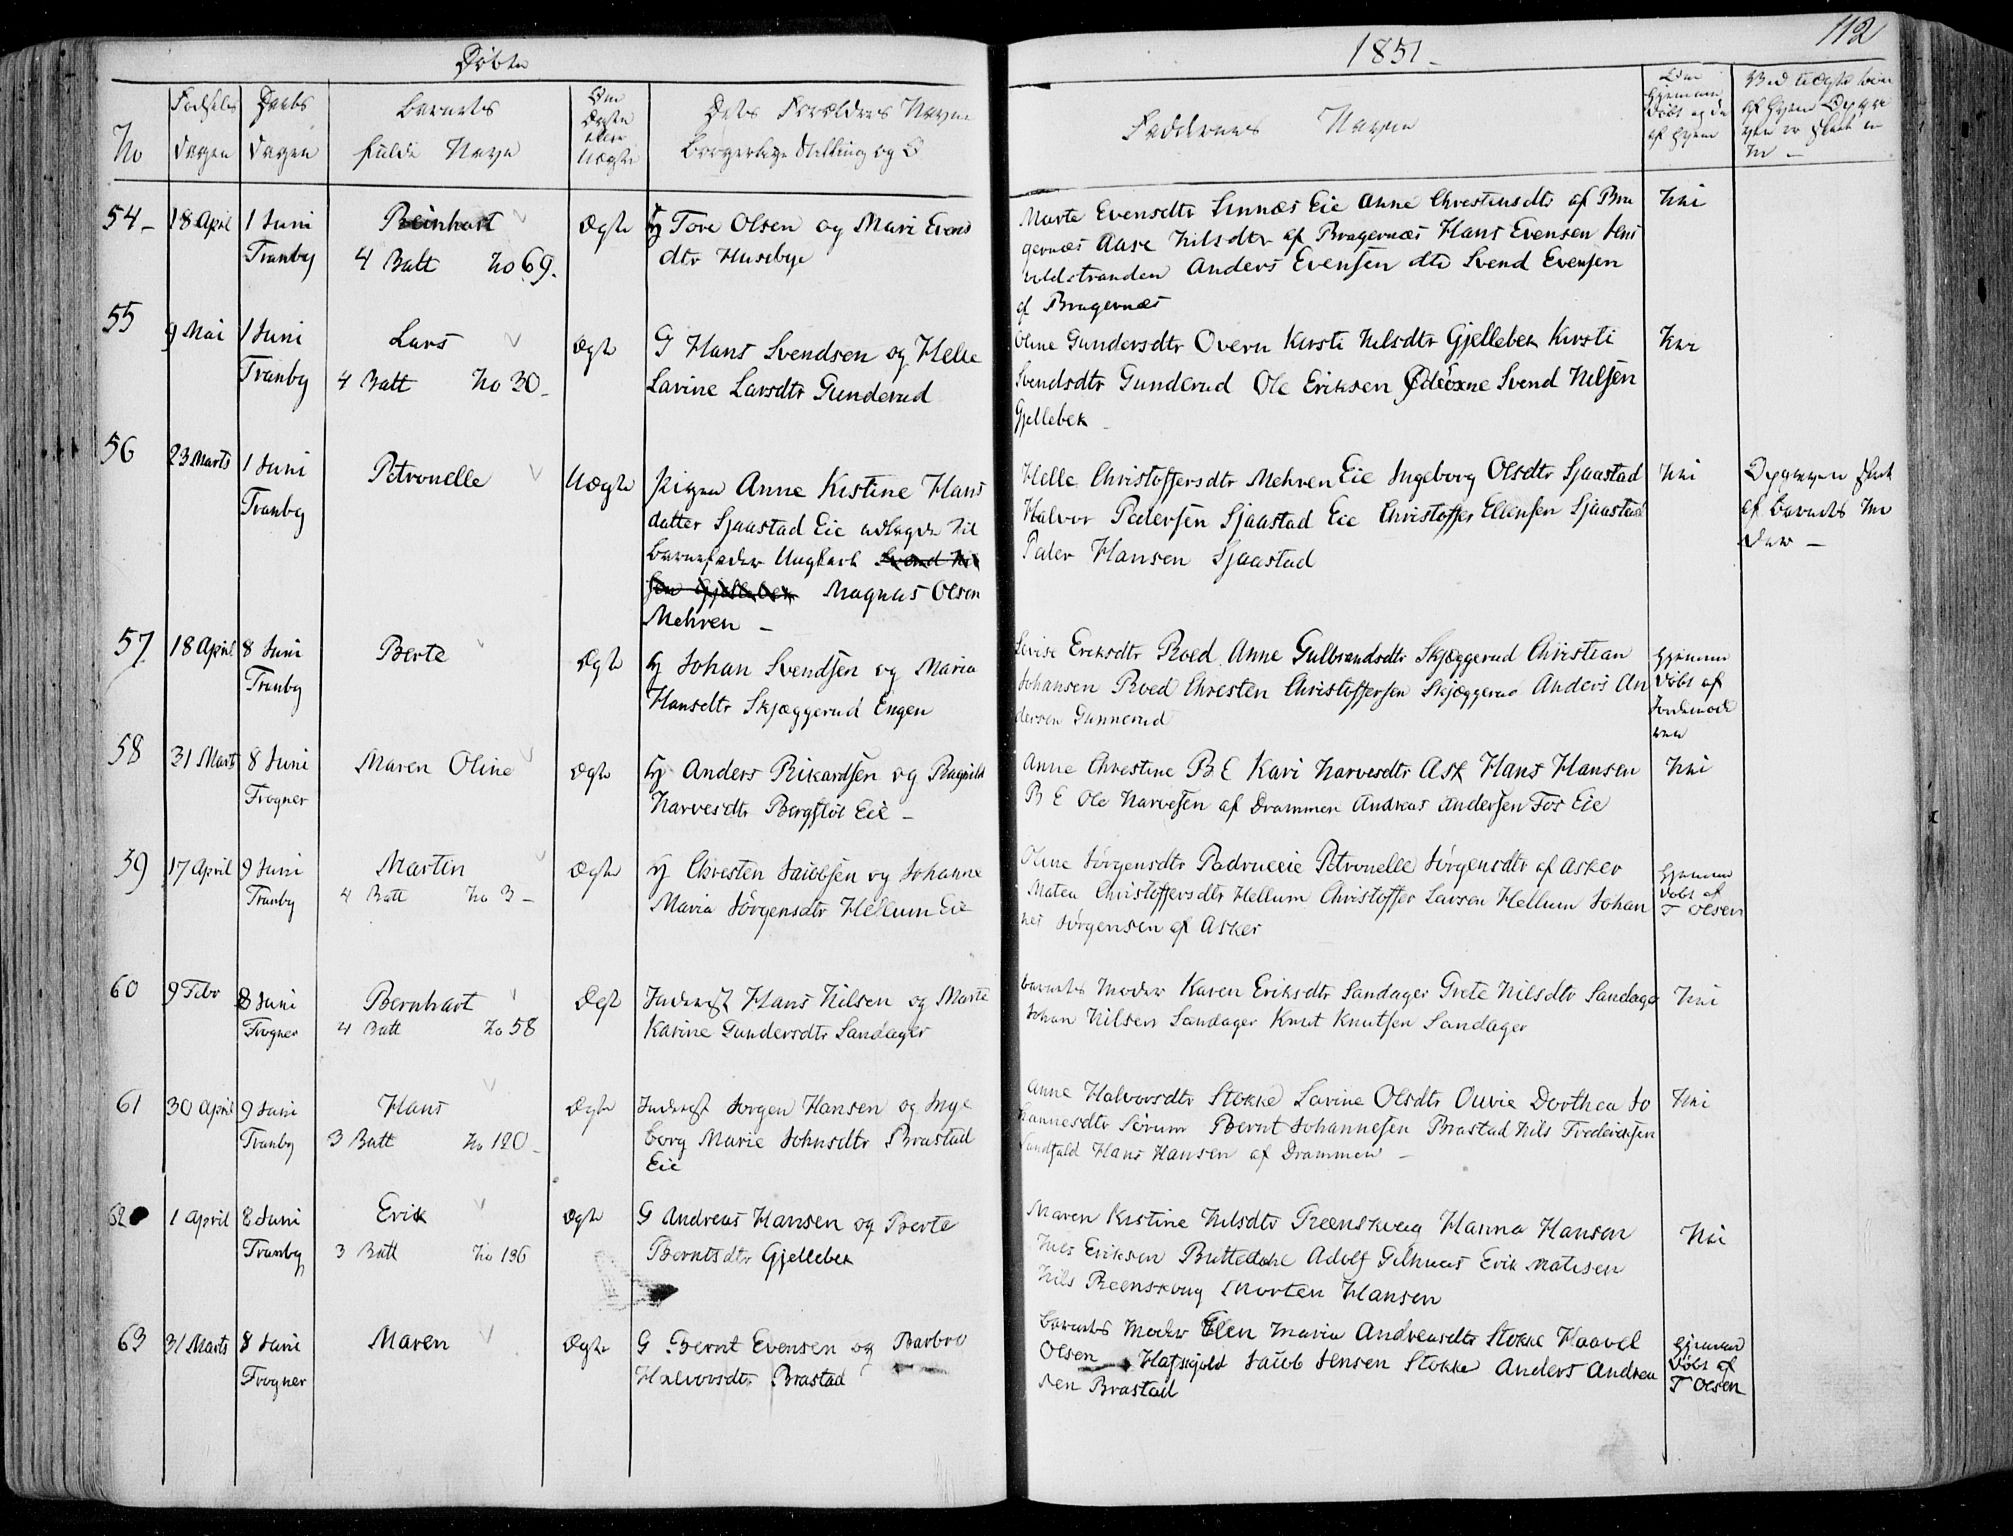 Døbte
1851.
112
No
Fødsels Dagen
Daabs Dagen
Barnets fulde Navn
Om Ægte eller Uægte
Dets Forældres Navne Borgerlige Stilling og
Faddernes Navne
Om hjemme døbt og da af hvem
54 - 18 April 1 Juni Tranby
Reinhart
4 Batt No 69.
Ægte
Hj Tore Olsen og Mari Evens
dtr Husebye
Marte Evensdtr Linnæs Eie Anne Christensdtr af Bra
gernæs Aase Nilsdtr af Bragernæs Hans Evensen
Anders Evensen dto Svend Evensen
af Bragernæs
Nei
55
9 Mai 1 Juni Tranby
Lars
4 Batt No 30 -
Ægte
G Hans Svendsen og Helle
Lavine Larsdtr Gunderud
Oline Gundersdtr Overn Kirsti Nilsdtr Gjellebek Kirsti
Svendsdtr Gunderud Ole Eriksen Svend Nilsen
Gjellebek
Nei
56
23 Marts 1 Juni Tranby
Petronelle
Uægte
Pigen Anne Kistine Hans
datter Sjaastad Eie udlagde til
Barnefader Ungkarl Svend Nil
sen Gjellebek Magnus Olsen
Mehren -
Helle Christoffersdtr Mehren Eie Ingeborg Olsdtr Sjaastad
Halvor Pedersen Sjaastad Eie Christoffer Ellensen Sjaastad
Peder Hansen Sjaastad
Nei
Opgiven skeet
af Barnets Mo
der -
57
18 April 8 Juni Tranby
Berte
Ægte
Hj Johan Svendsen og Maria
Hansdtr Skjæggerud Engen
Lovise Eriksdtr Roed Anne Gulbrandsdtr Skjæggerud Christian
Johansen Roed Christen Christoffersen Skjæggerud Anders An
dersen Gunnerud
Hjemme
døbt af
Jordemode
ren
58
31 Marts 8 Juni Frogner
Maren Oline
Ægte
Hj Anders Rikardsen og Ragnild
Narvesdtr Bergsløt Eie -
Anne Chrestine B E Kari Narvesdtr Ask Hans Hansen
B E Ole Narvesen af Drammen Andreas Andersen Fos Eie
Nei
59
17 April 9 Juni Tranby
Martin
4 Batt No 3 -
Ægte
Hj Chresten Jacobsen og Johanne
Maria Jørgensdtr Hellum Eie
Oline Jørgensdtr Padruceie Petronelle Jørgensdtr af Asker
Matea Christoffersdtr Hellum Christoffer Larsen Hellum Johan
nes Jørgensen af Asker
Hjemme
døbt af
T Olsen
60
9 Febr 8 Juni Frogner
Bernhart
4 Batt No 58
Ægte
Inderst Hans Nilsen og Marte
Karine Gundersdtr Sandager
Barnets Moder Karen Eriksdtr Sandager Grete Nilsdtr Sandager
Johan Nilsen Sandager Knut Knutsen Sandager
Nei
61
30 April 9 Juni Tranby
Hans
3 Batt No 120 -
Ægte
Inderst Jørgen Hansen og Inge
borg Marie Johnsdtr Brastad
Eie
Anne Halvorsdtr Stokke Lavine Olsdtr Ouvie Dorthea Jo
hannesdtr Sørum Bernt Johannesen Brastad Nils Frederiksen
Landfald Hans Hansen af Drammen -
Nei
62
1 April 8 Juni Tranby
Erik
3 Batt No 136
Ægte
G Andreas Hansen og Berte
Berntsdtr Gjellebek
Maren Kistine Nilsdtr Reenskoug Hanna Hansen
Nils Eriksen Buttedahl Adolf Gilhuus Erik Matisen
Nils Reenskoug Morten Hansen
Nei
63
31 Marts 8 Juni Frogner
Maren
Ægte
G Bernt Evensen og Barbro
Halvorsdtr Brastad
Barnets Moder Elen Maria Andreasdtr Stokke Haavel
Olsen Hafskjold Jacob Jensen Stokke Anders Andrea
sen Brastad
Hjemme
døbt af
T Olsen